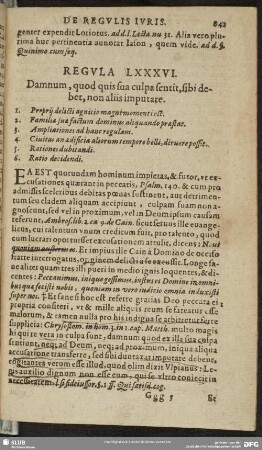 DE REGVLIS IVRIS. 842
genter expendit Loriotus. ad d. l. Lecta. nu 31. Alia vero plu-
rima huc pertinentia annotat Iason, quem vide. ad d. §.
Quinimo cum seq.
REGVLA LXXXVI.
Damnum, quod quis sua culpa sentit, sibi de-
bet, non aliis imputare.
1. Proprij delicti agnitio magni momenti est.
2. Familia sua factum dominus aliquando præstat.
3. Ampliationes ad hanc regulam.
4. Ciuitas an ædificia aliorum tempore belli, diruere posset.
5. Rationes dubitandi.
6. Ratio decidendi.
EA EST quorundam hominum impietas, & furor, vt ex-
cusationes quærant in peccatis, Psalm. 140. & cum pro
admissis sceleribus debitas pœnas sustinent, aut detrimen-
tum seu cladem aliquam accipiunt, culpam suam non a-
gnoscant, sed vel in proximum, vel in Deum ipsum causam
referant. Ambros. lib. 2. ca 9. de Cain. sicut seruus ille euange-
licus, cuti dominus vitæ creditum fuit, pro talento, quod
cum lucrari oportuisset excusationem attulit, dicens: N. ut
quoniam austerus es. Et impius ille Cain à Domino de occiso
fratre interrogatus,
ne aliter quam tres illi pueri in medio ignis loquentes, & di-
centes: Peccauimus, iniquè gessimus, iustus es Domine in omni-
bus quæ fecisti nobis, quoniam in vero iudicio omnia induxisti
super nos. Et sane si hoc est referre gratias Deo peccata ei
propria confiteri, vt & mille aliquis reum se fatearis esse
malorum, & tamen nulla pro his indigna se arbitretur ferre
supplicia: Chrysostom. in hom. 3. in 1. cap. Matth. multo magis
hi quite vera in culpa sunt, damnum quod ex illa sua culpa
sentiunt, neq; ad Deum, neq; ad proximum, iniqua aliqua
accusatione transferre, sed sibi duntaxat imputare debent,
cogitantes verum esse illud, quod olim dixit Vlpianus: Le-
pis auxilio dignum non esse eum, qui se vltro coniecit in
necessitatem. l. si fideiussor. §. 1. ff. Qui satisd. cog.
Ggg 5 Et
SLUB